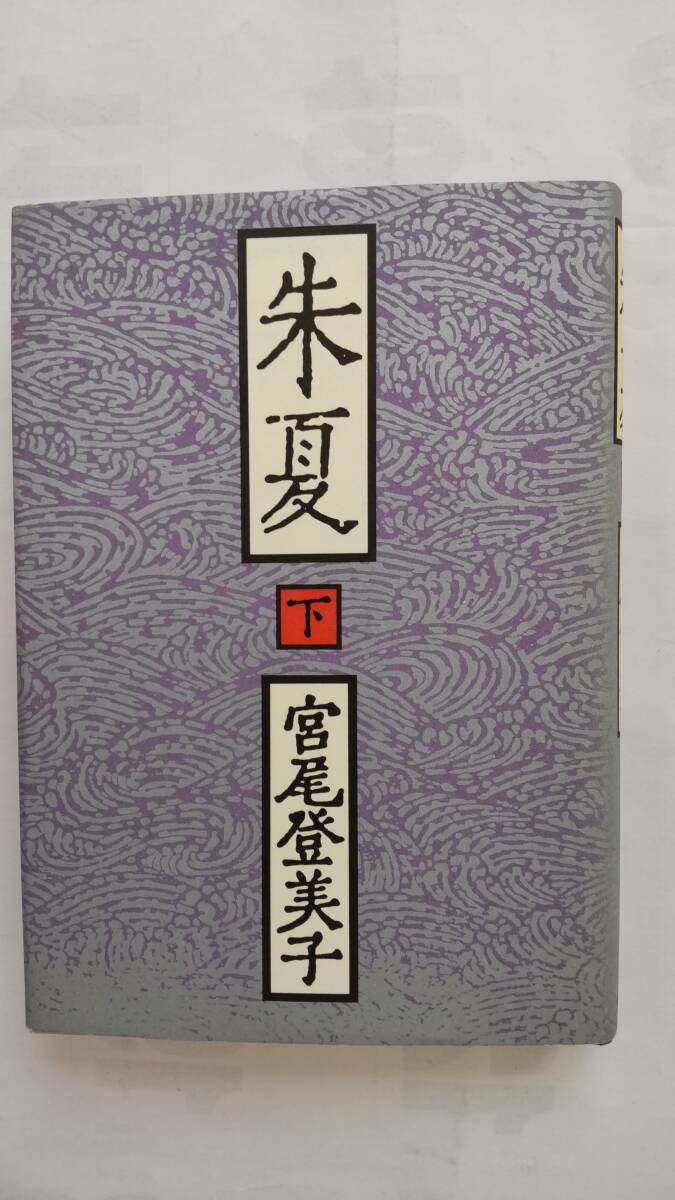 朱夏
下
宮尾登美子